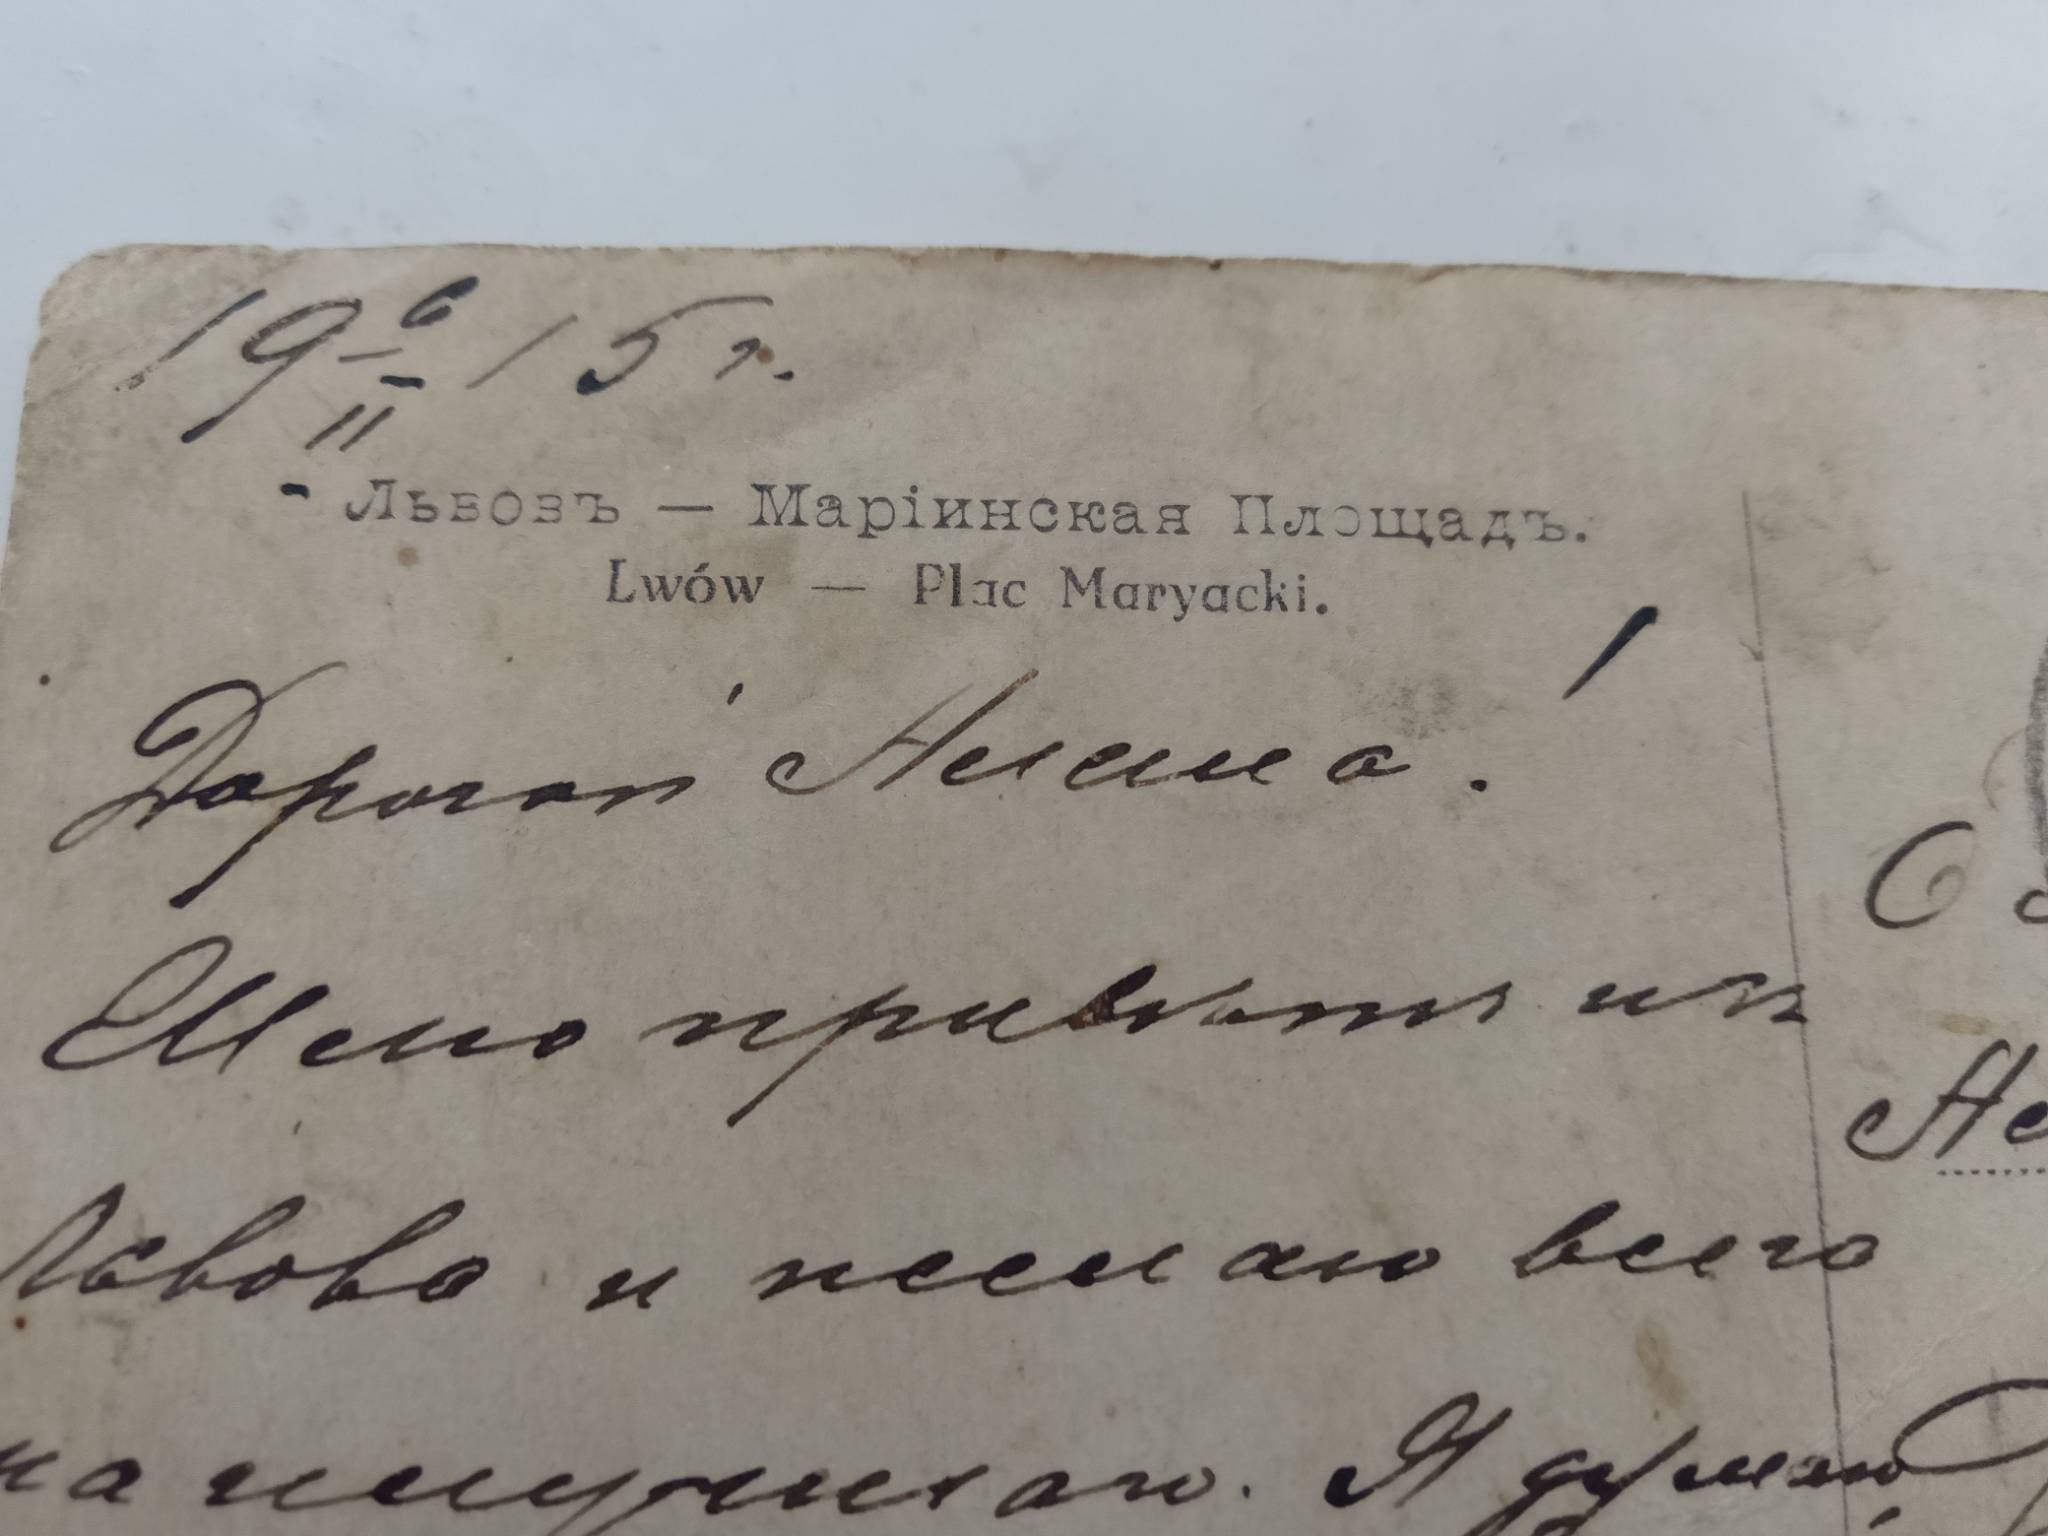 19 6/II 15 г.
Львовъ — Маріинская Площадь.
Lwów — Plac Maryacki.
Дорогой Алеша!
Шлю приветъ изъ
Львова и желаю всего
наилучшаго. Я думаю